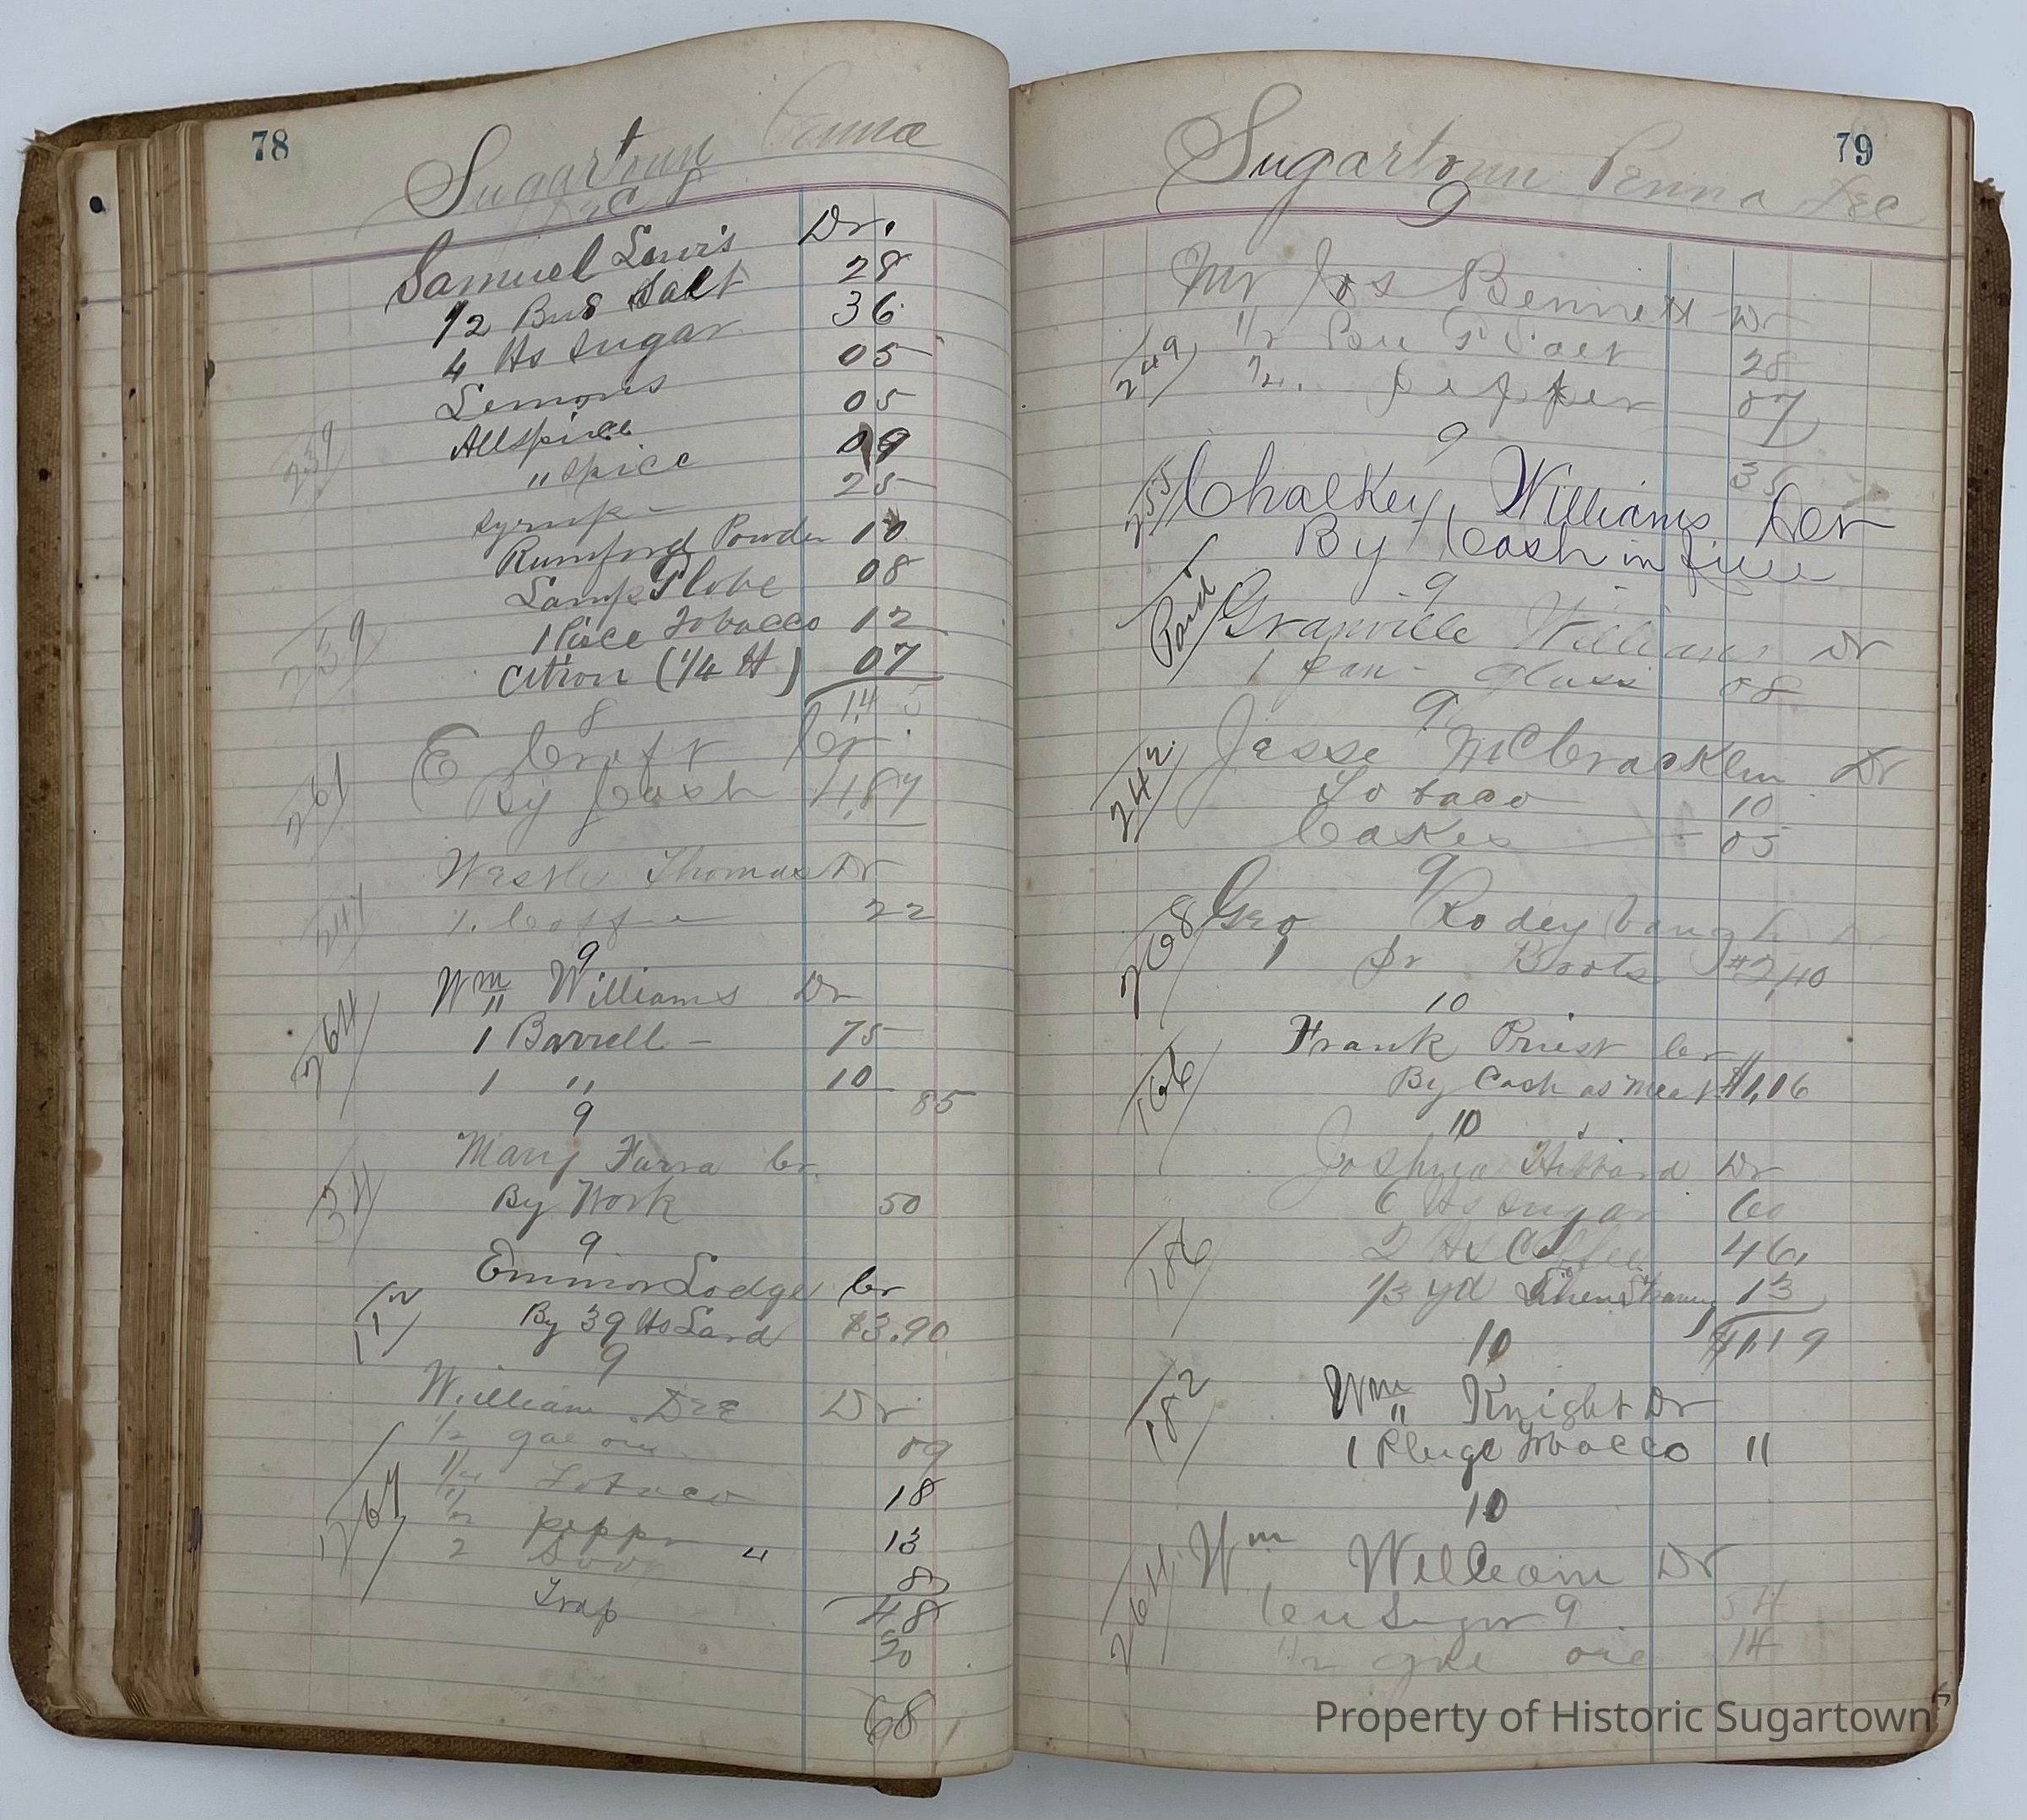 78
Sugartown Penna
Dec 8
Samuel Lewis Dr.
1/2 Bus Salt 28
4 lbs Sugar 36
Lemons 05
Allspice 05
239 " spice 09
syrup - 25
Rumford Powder 10
Lamp Globe 08
1 Piece Tobacco 12
239 Citron (1/4 lb) 07
1.45
8
E Croft Cr.
261 By Cash 1.87
8
Thomas Dr
247 1. Coffee 22
9
Wm Williams Dr
264 1 Barrell - 75
1 " 10
85
9
Mary Farra Cr.
34 By Work 50
9.
Emmor Lodge Cr
112 By 39 lbs Lard $3.90
9
William Dee Dr
1/2 gal 09
1/4 Tobaco 18
267 1/2 pepper " 13
2 Soap 8
Trap 48
20
68
79
Sugartown Penna Dec
9
Mr Jos Bennett Dr
249 1/2 Bu Salt 28
1/4. pepper 07
35
9
255 Chalkey Williams Cr
By Cash in full
9
Paid Granville Williams Dr
1 pan - Glass 08
9
242 Jesse McCracklen Dr
Tobaco 10
Cakes - 05
9
268 Geo Rodeybaugh
1 Pr Boots $2,40
10
Frank Priest Cr
166 By Cash as Meat $1,16
10
Joshua Hibbard Dr
6 lbs sugar 60
186 2 lbs Coffee 46,
1/3 yd 13
$1.19
10
182 Wm Knight Dr
1 Pluge Tobacco 11
10
Wm William Dr
264 Sugar 9 54
1/2 gal oil 14
Property of Historic Sugartown